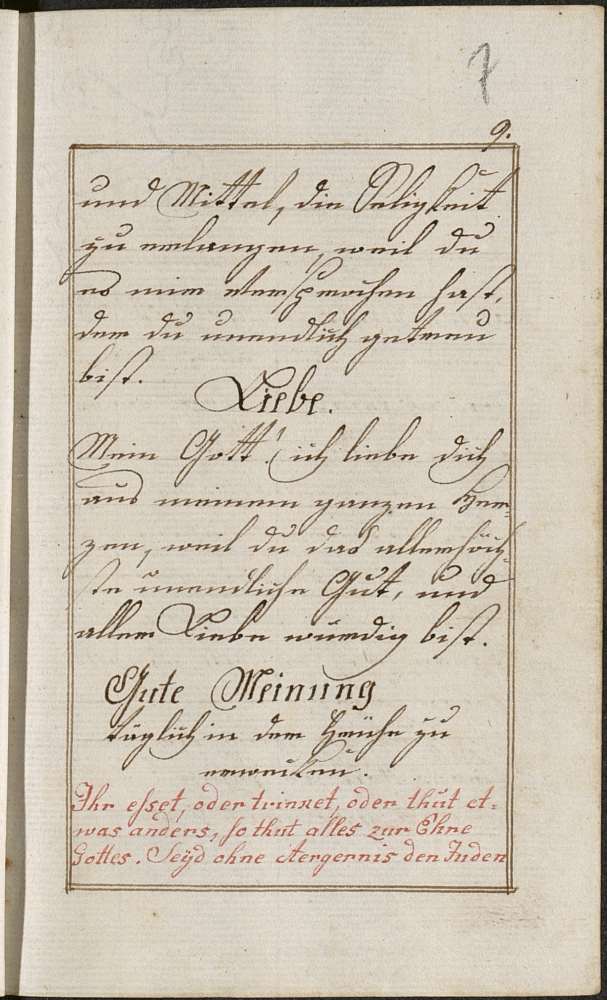 7
9.
und Mittel, die Seligkeit
zu erlangen, weil du
es mir versprochen hast,
der du unendlich getreu
bist.
Liebe.
Mein Gott! ich liebe dich
aus meinem ganzen Her-
zen, weil du das allerhöch-
ste unendliche Gut, und
aller Liebe würdig bist.
Gute Meinung
täglich in der Frühe zu
erwecken.
Ihr esset, oder trinket, oder thut et-
was anders, so thut alles zur Ehre
Gottes. Seÿd ohne Aergernis den Juden